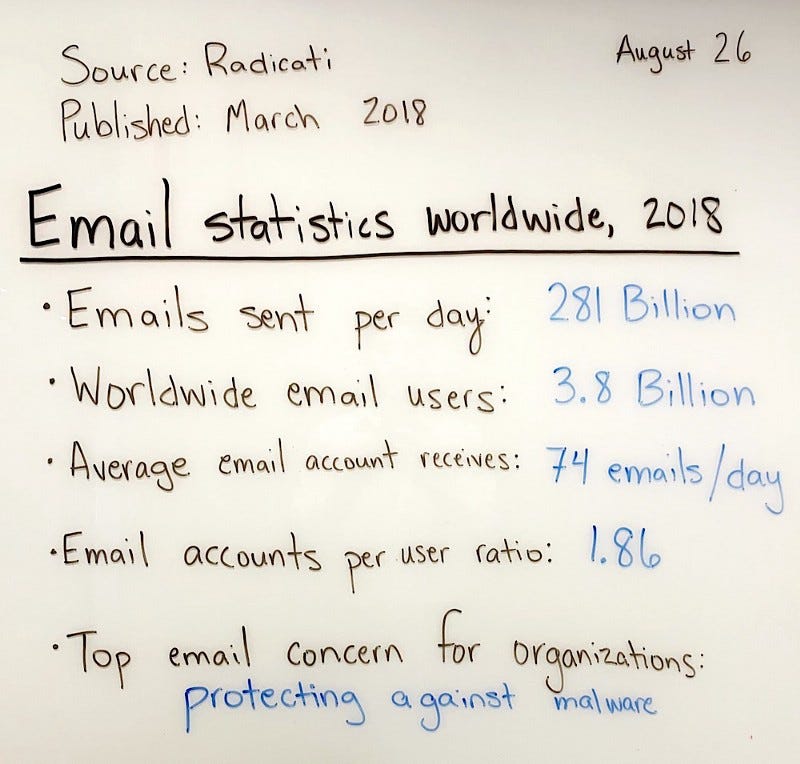 Source: Radicati
August 26
Published: March 2018
Email statistics worldwide, 2018
· Emails sent per day: 281 Billion
· Worldwide email users: 3.8 Billion
· Average email account receives: 74 emails/day
· Email accounts per user ratio: 1.86
· Top email concern for organizations:
protecting against malware